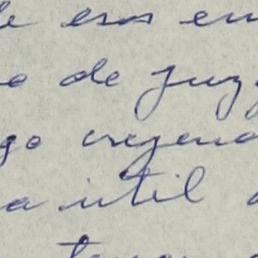 de esos en
o de juzg
go creyend
a útil